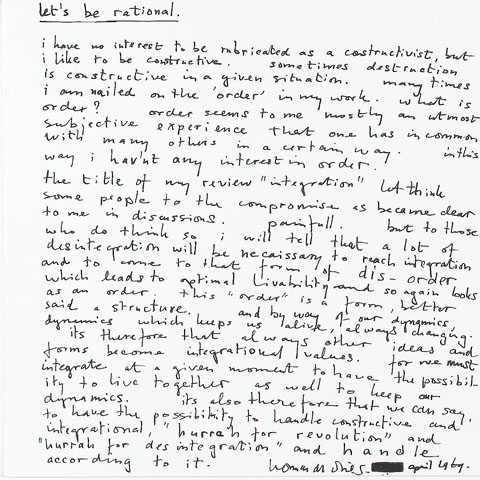 let's be rational.
i have no interest to be rubricated as a constructivist, but
i like to be constructive. sometimes destruction
is constructive in a given situation. many times
i am nailed on the 'order' in my work. what is
order? order seems to me mostly an utmost
subjective experience that one has in common
with many others in a certain way. in this
way i hav'nt any interest in order.
the title of my review "integration" let think
some people to the compromise as became clear
to me in discussions. painfull. but to those
who do think so i will tell that a lot of
desintegration will be necaissary to reach integration
and to come to that form of dis-order
which leads to optimal livability and so again looks
as an order. this "order" is a form, better
said a structure. and by way of our dynamics,
dynamics which keeps us alive, always changing.
its therefore that always other ideas and
forms become integrational values. for we must
integrate at a given moment to have the possibil
ity to live together as well to keep our
dynamics. its also therefore that we can say,
to have the possibility to handle constructive and
integrational, "hurrah for revolution" and
"hurrah for desintegration" and handle
according to it. herman de vries. april 1969.